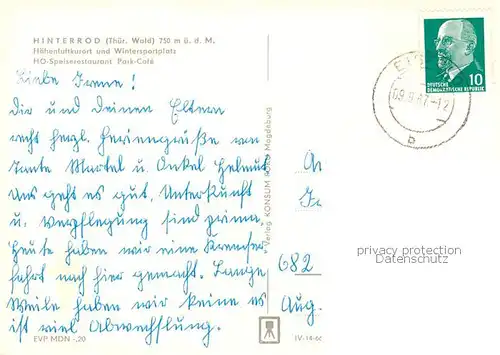 HINTERROD (Thür. Wald) 750 m ü. d. M.
Höhenluftkurort und Wintersportplatz
HO-Speiserestaurant Park-Café
Liebe Irene!
Dir und deinen Eltern
recht herzl. Feriengrüße von
Tante Martel u. Onkel Helmut
Uns geht es gut, Unterkunft
u. Verpflegung sind prima,
Heute haben wir eine Kremser
fahrt nach hier gemacht. Lange
Weile haben wir keine es
ist viel Abwechslung.
EVP MDN -,20
Verlag KONSUM Magdeburg
IV-14-
DEUTSCHE
DEMOKRATISCHE REPUBLIK
10
b
682
Aug.
privacy protection
Datenschutz